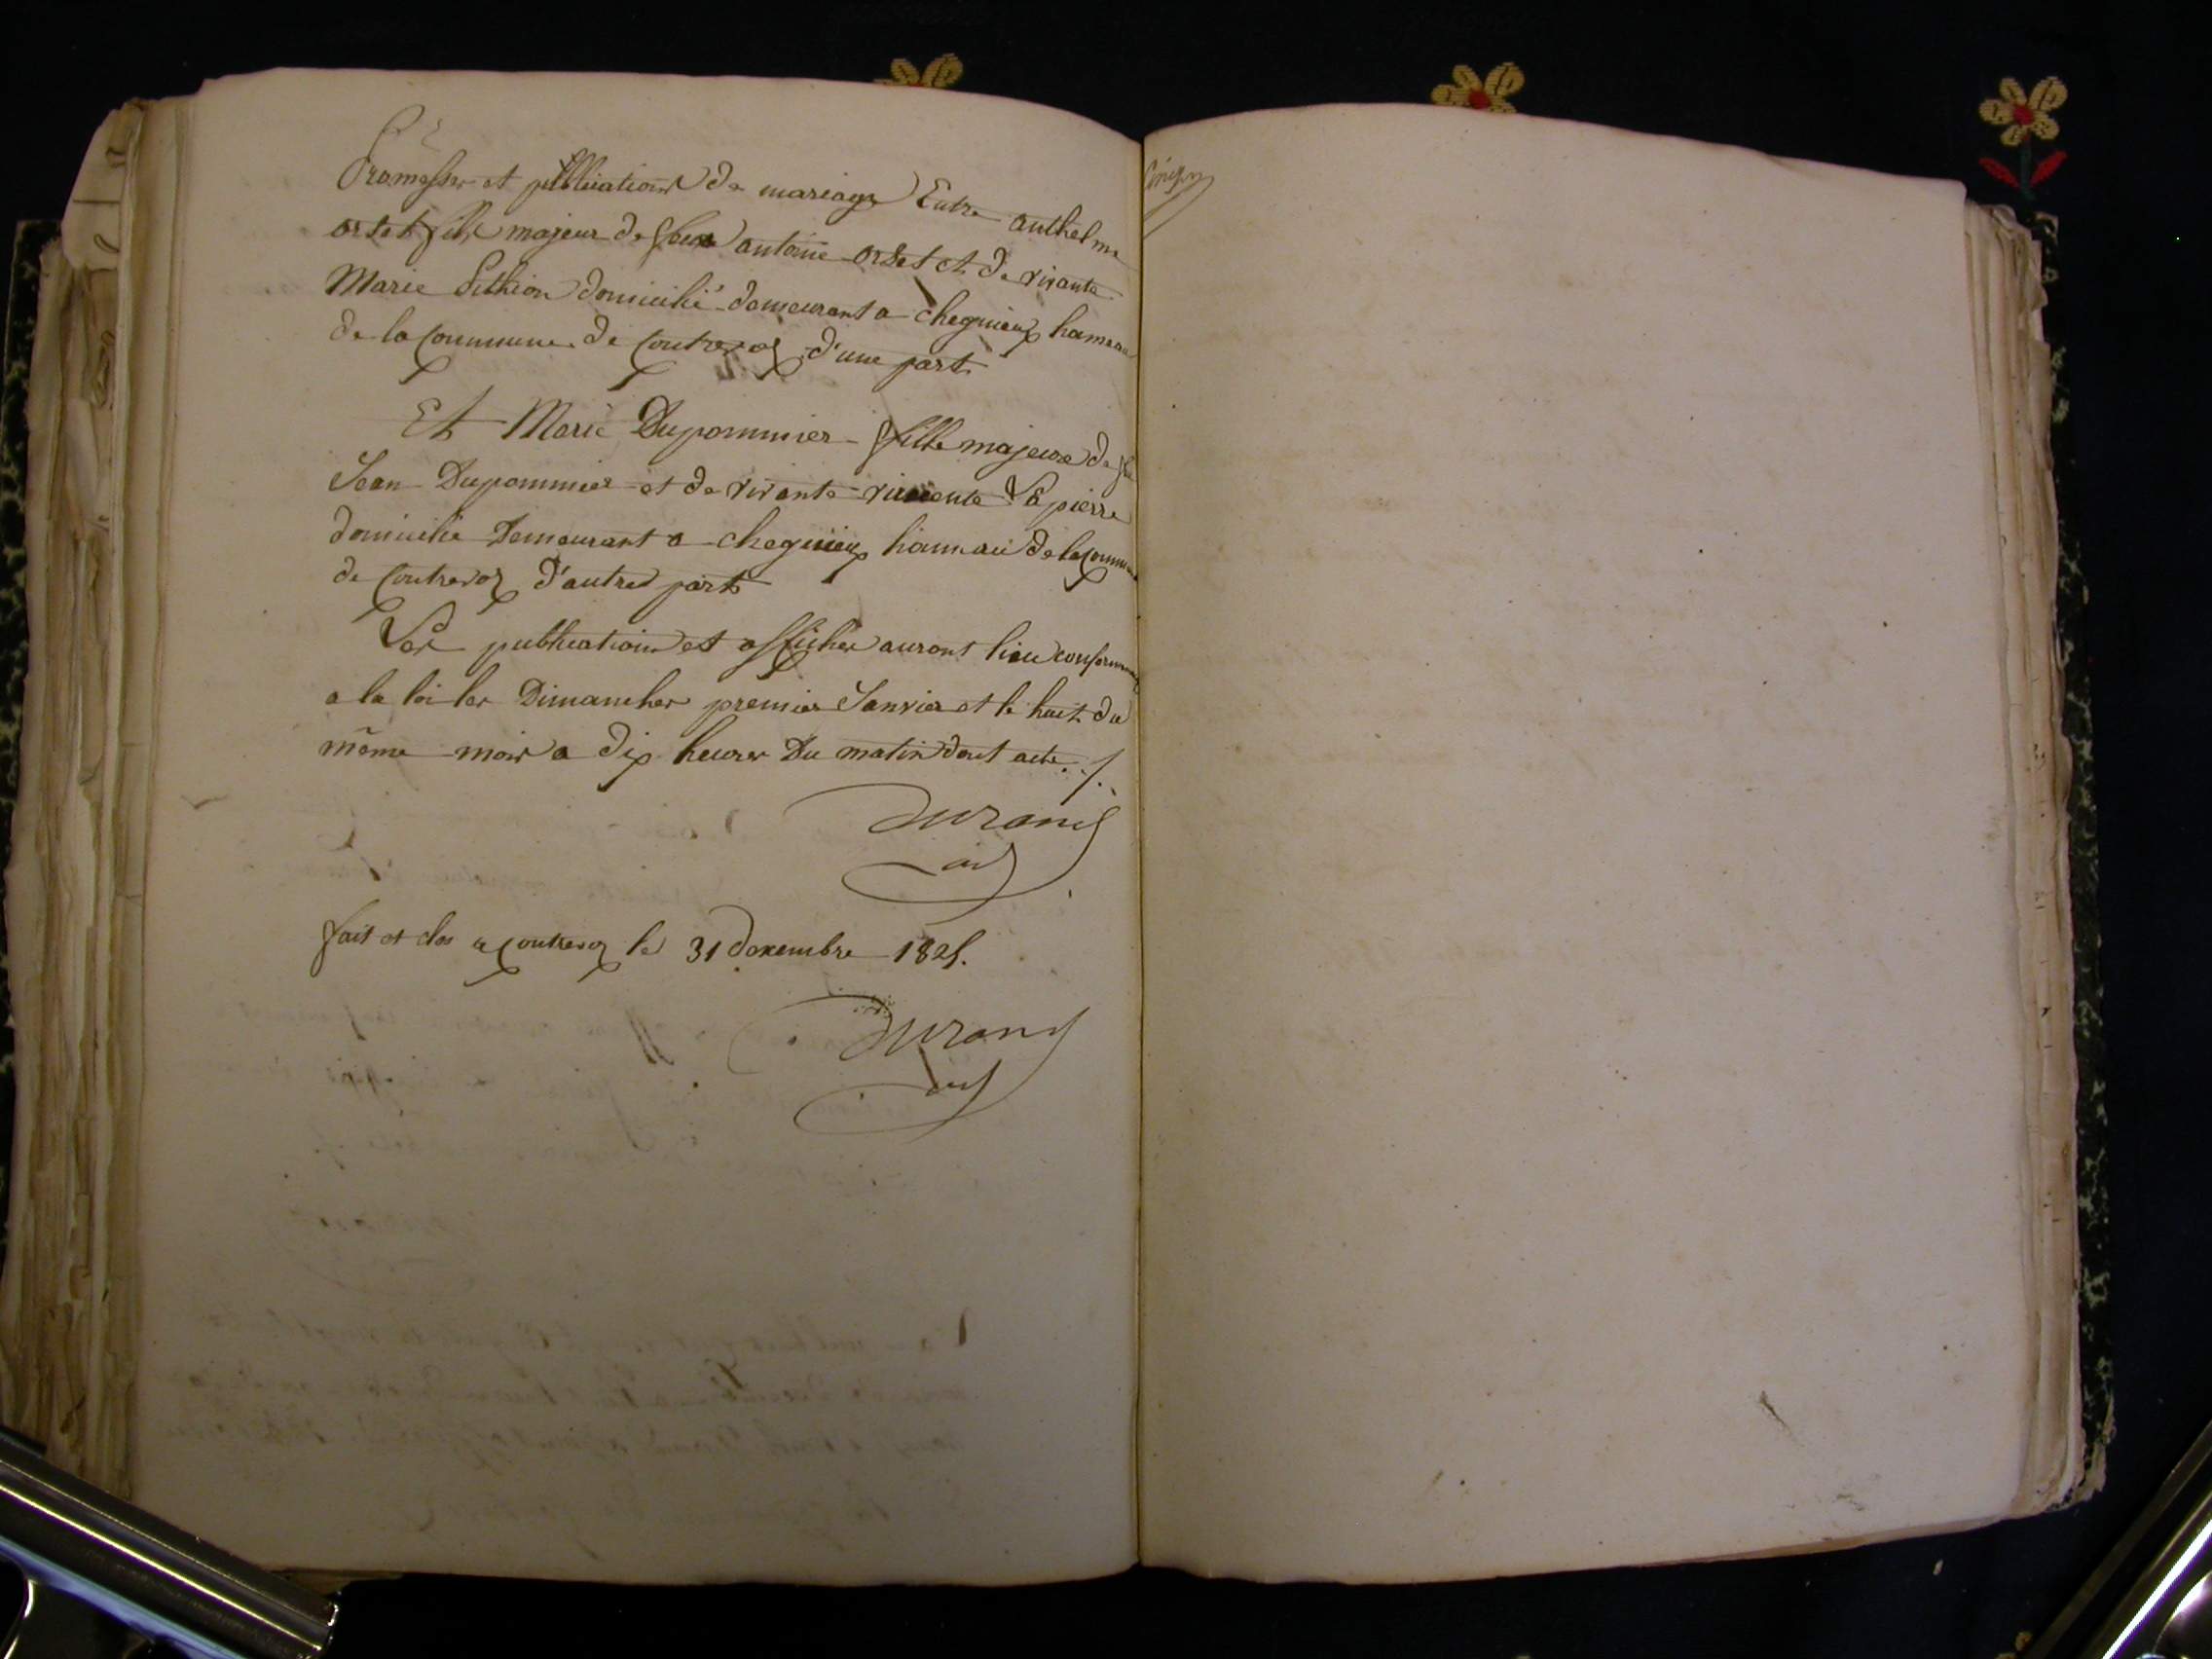 Promesses et publications de mariage Entre anthelme
orset fils majeur de feu antoine orset et de vivante
Marie Lithion domicilié demeurant a chegnieux hameau
de la Commune de Contrevoz d'une part
Et Marie Dupommier fille majeure de feu
Jean Dupommier et de vivante vincente Lapierre
domicilie Demeurant a chegnieux hamau de la Commune
de Contrevoz d'autre part
Les publications et affiches auront lieu conformement
a la loi les Dimanches premier Janvier et le huit du
même mois a dix heures Du matin dont acte ./.
Durand
adj
fait et clos a Contrevoz le 31 decembre 1825.
Durand
adj